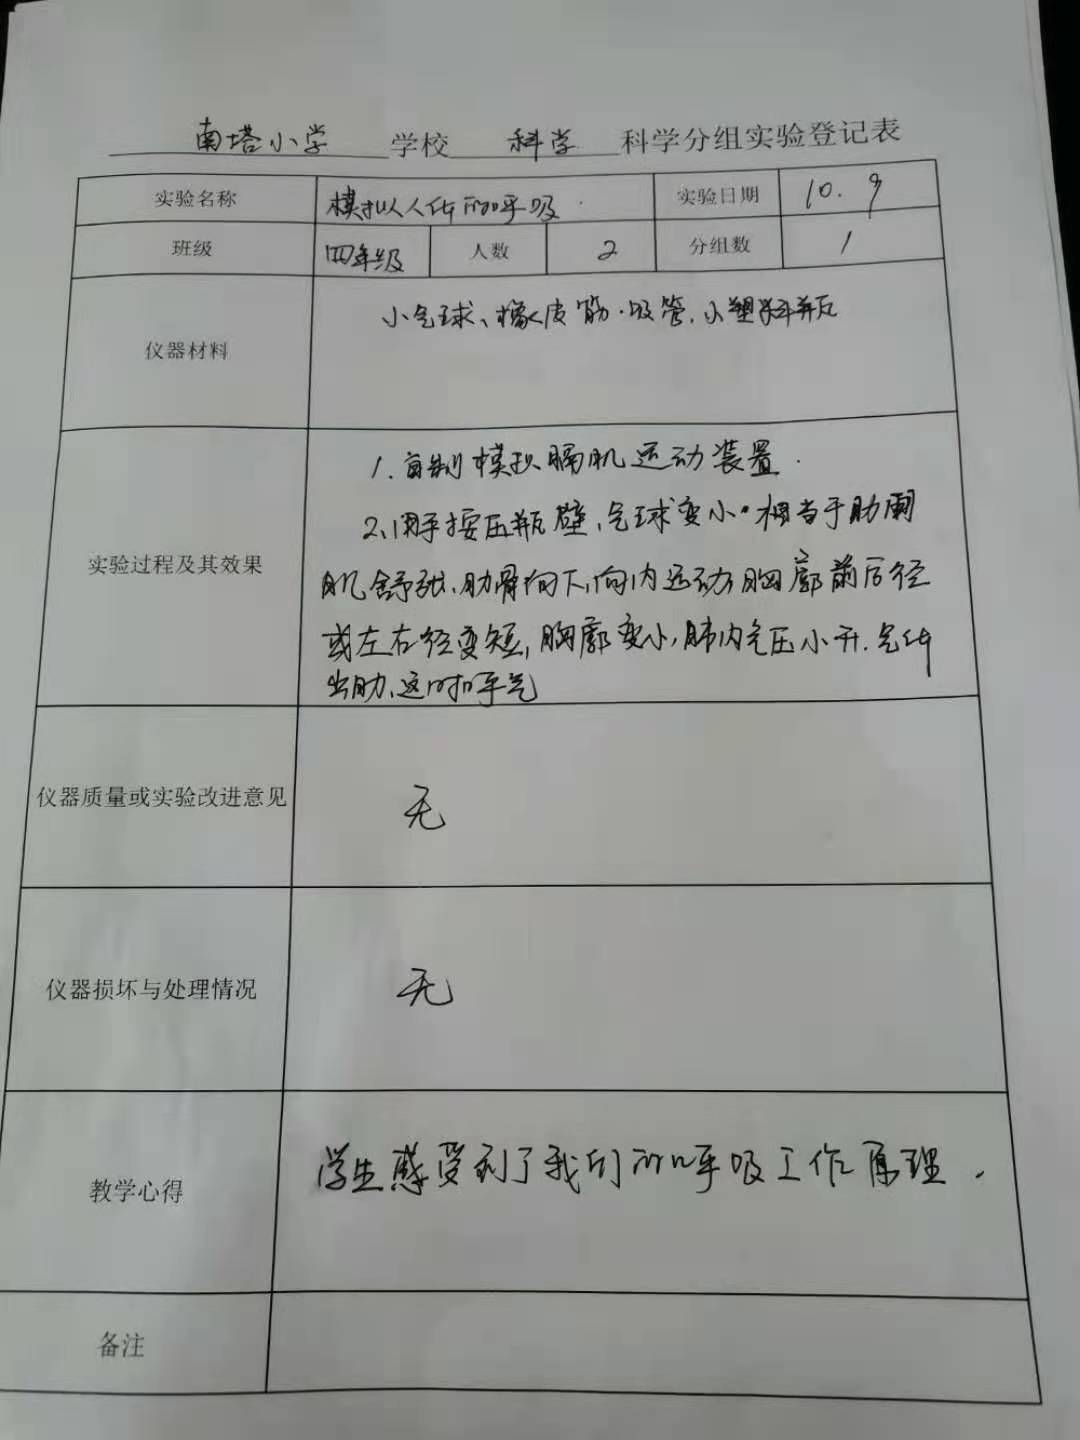 南塔小学 学校 科学 科学分组实验登记表
实验名称 模拟人体的呼吸 实验日期 10.9
班级 四年级 人数 2 分组数 1
仪器材料 小气球、橡皮筋.吸管.小塑料瓶
1.自制模拟膈肌运动装置.
2、用手按压瓶壁,气球变小.相当于肋间
实验过程及其效果
肌舒张、肋骨向下,向内运动,胸廓前后径
或左右径变短,胸廓变小,肺内气压小升.气体
出肋、这时呼气
仪器质量或实验改进意见 无
仪器损坏与处理情况 无
教学心得 学生感受到了我们的呼吸工作原理.
备注